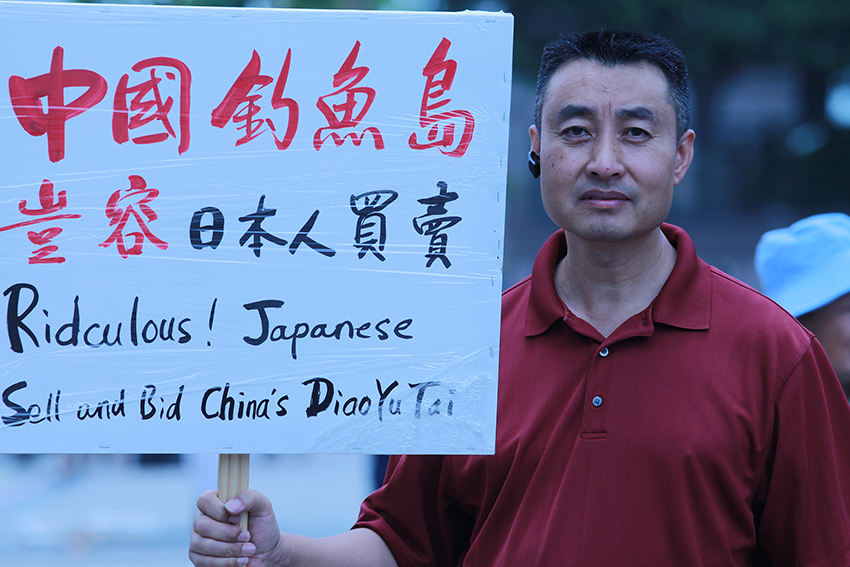 中國釣魚島
豈容日本人買賣
Ridculous! Japanese
Sell and Bid China's DiaoYu Tai